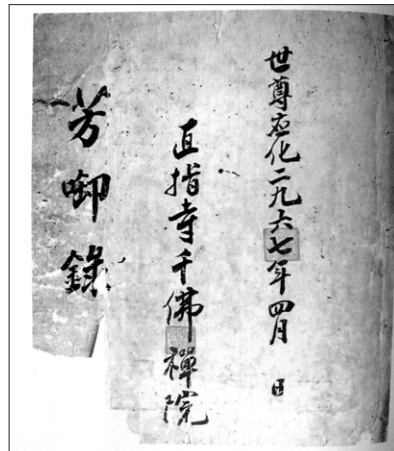 世尊应化二九六七年四月 日
直指寺千佛禪院
芳啣錄